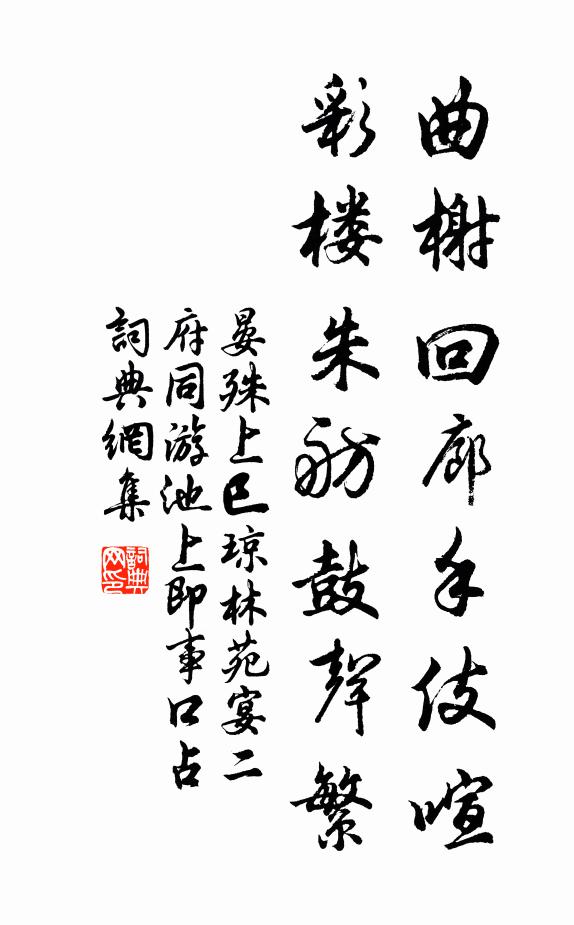 曲榭回廊手伎喧
彩楼朱舫鼓聲繁
晏殊上巳琼林苑宴二
府同游池上即事口占
詞典網集
詞典网印